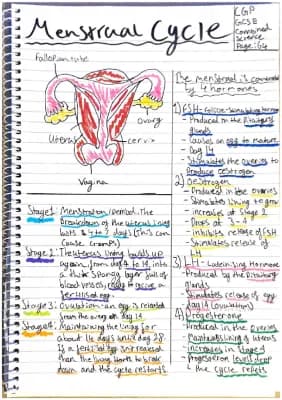 Menstrual Cycle
KGP
GCSE
Combined
Science
Page: 64
Fallopian tube
Ovary
Uterus
cervix
Vagina
The menstrual is controlled
by 4 hormones
1) FSH - Follicle-Stimulating Hormone
- Produced in the Pituitary
glands
- Causes an egg to mature
- Day 14
- Stimulates the ovaries to
Produce oestrogen
2) Oestrogen
- Produced in the ovaries
- Stimulates lining to grow
- increases at Stage 2
- Drops at 3 - 4
- inhibits release of FSH
- Stimulates release of
LH
3) LH - Luteinising Hormone
- Produced by the Pituitary
glands
- Stimulates release of egg
- day 14 (ovulation)
4) Progesterone
- Produced in the ovaries
- Maintains lining of uterus
- increases in Stage 4
- Progesterone levels drop
& the cycle repeats
Stage 1: Menstruation/period. The
Breakdown of the uterus lining
(This can
cause cramps)
Stage 2: The uterus lining builds up
again, from day 4 to 14, into
a thick spongy layer full of
blood vessels, ready to receive a
fertilised egg.
Stage 3: Ovulation = an egg is released
from the ovary at day 14.
Stage 4: Maintaining the lining for
about 14 days until day 28.
If no fertilised egg
then the lining starts to break
down and the cycle restarts